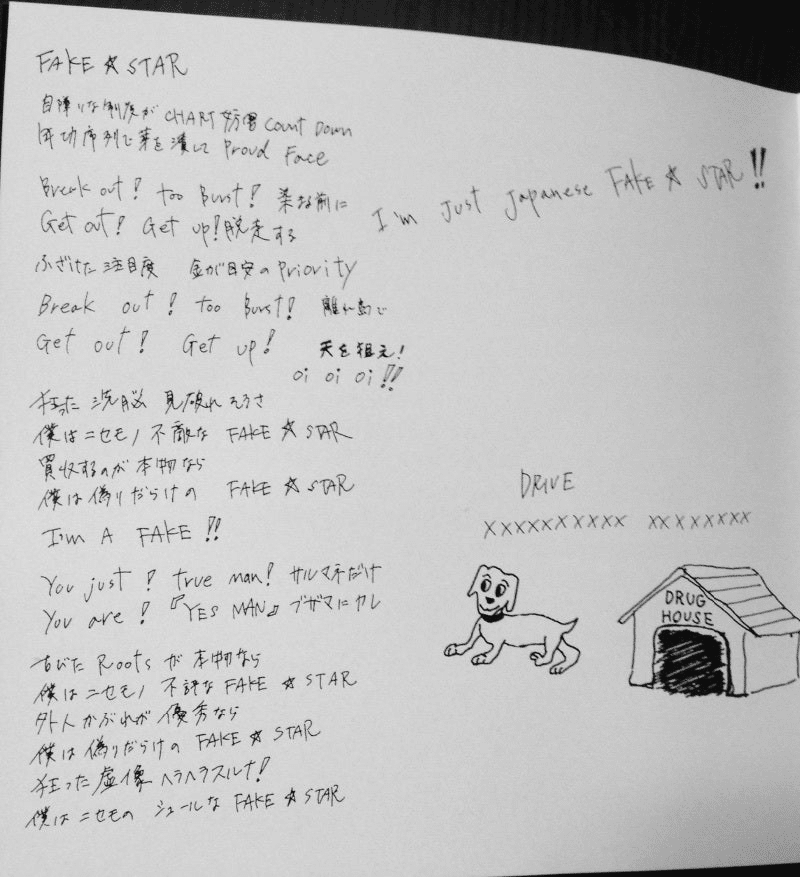 FAKE ☆ STAR
自障りな制度が CHART 妨害 Count Down
年功序列で芽を潰して Proud Face
Break out! too Burst! 染な前に
Get out! Get up! 脱走する
ふざけた注目度 金が目安のPriority
Break out! too Burst! 離れ島で
Get out! Get up! 天を狙え!
oi oi oi!!
狂った洗脳 見破れそうさ
僕はニセモノ 不敵な FAKE ☆ STAR
買収するのが本物なら
僕は偽りだらけの FAKE ☆ STAR
I'm A FAKE!!
You just! true man! サルマネだけ
You are! 『YES MAN』 ブザマにカレ
古びた Roots が本物なら
僕はニセモノ 不評な FAKE ☆ STAR
外人かぶれが優秀なら
僕は偽りだらけの FAKE ☆ STAR
狂った虚像 ヘラヘラスルナ!
僕はニセモの シュールな FAKE ☆ STAR
I'm Just Japanese FAKE ☆ STAR!!
DRIVE
XXXXXXXXXX XXXXXXXX
DRUG
HOUSE